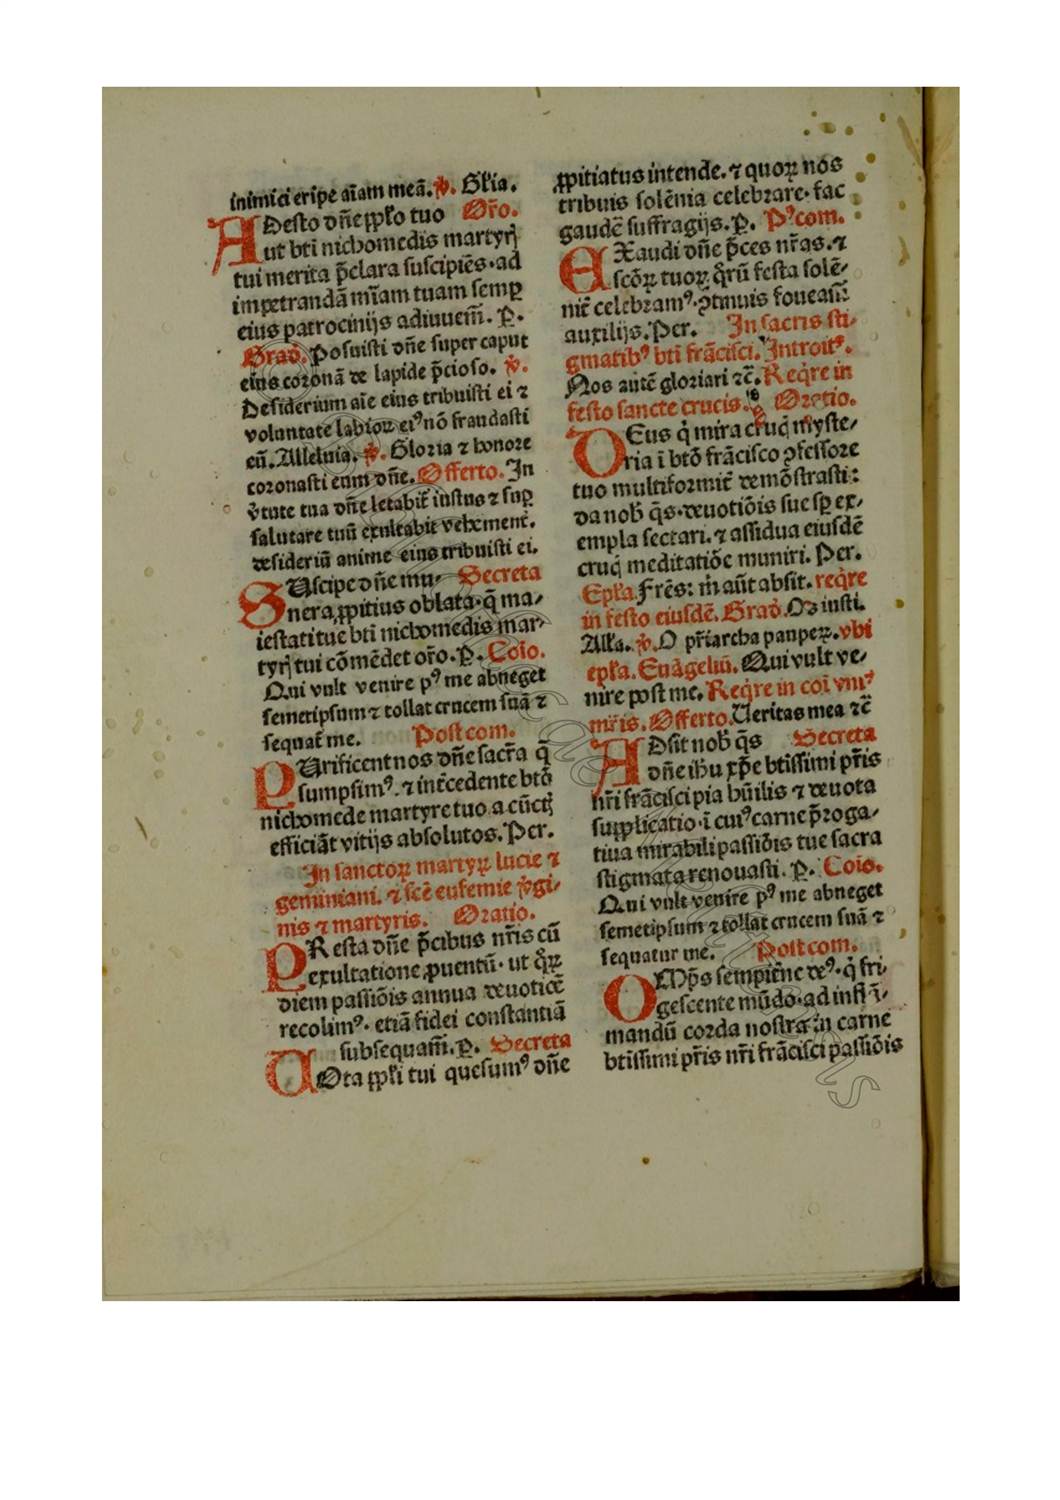 inimici eripe aīam meā. ꝟ. Gl'ia.
ADesto dn̄e pp̄lo tuo Or̄o.
ut bt̄i nichomedis martyrꝭ
tui merita p̄clara suscipiēs· ad
impetrandā mīam tuam semꝑ
eius patrocinijs adiuuem̄. P.
Grad̄. Posuisti dn̄e super caput
eius coronā de lapide p̄cioso. ꝟ.
Desiderium aīe eius tribuisti ei ⁊
voluntate labioꝝ eiꝰ nō fraudasti
eū. Alleluia. ꝟ. Gloria ⁊ honore
coronasti eum dn̄e. Offerto. In
v̄tute tua dn̄e letabit᷑ iustus ⁊ suꝑ
salutare tuū exultabit vehement᷑.
desideriū anime eius tribuisti ei.
SUscipe dn̄e mu⸗ Secreta
nera ꝓpitius oblata· q̄ ma⸗
iestati tue bt̄i nichomedis mar⸗
tyrꝭ tui cōmēdet or̄o. P. Coīo.
Qui vult venire pꝰ me abneget
semetipsum ⁊ tollat crucem suā ⁊
sequat᷑ me. Post com.
PUrificent nos dn̄e sacr̄a q̄
sumpsimꝰ. ⁊ int̄cedente bt̄o
nichomede martyre tuo a cūctꝭ
efficiāt vitijs absolutos. Per.
In sanctoꝝ martyꝝ lucie ⁊
geminiani. ⁊ scē eufemie ꝟgi⸗
nis ⁊ martyris. Oratio.
PResta dn̄e p̄cibus nr̄is cū
exultatione ꝓuentū· ut q̄ꝝ
diem passiōis annua deuotiōe
recolimꝰ· etiā fidei constantiā
subsequam̄. P. Secreta
UOta pp̄li tui quesumꝰ dn̄e
ꝓpitiatus intende. ⁊ quoꝝ nos
tribuis solēnia celebrare· fac
gaudē suffragijs. P. Pꝰcom.
EXaudi dn̄e p̄ces nr̄as. ⁊
scōꝝ tuoꝝ q̄rū festa solē⸗
nit᷑ celebramꝰ. ꝯtinuis foueam̄
auxilijs. Per. In sacris sti⸗
gmatibꝰ bt̄i frācisci. Introitꝰ.
Nos autē gloriari ⁊c̄. Req̄re in
festo sancte crucis. Oratio.
DEus q̇ mira crucꝭ myste⸗
ria ī bt̄o frācisco ꝯfessore
tuo multiformit᷑ demōstrasti:
da nob̄ q̄s· deuotiōis sue sꝑ ex⸗
empla sectari. ⁊ assidua eiusdē
crucꝭ meditatiōe muniri. Per.
Epl'a. Fr̄es: m̄ aūt absit. reqre
in festo eiusdē. Grad̄. Os iusti.
All'a. ꝟ. O pr̄iarcha pauꝑeꝝ. vbi
epl'a. Euāgeliū. Qui vult ve⸗
nire post me. Req̄re in coī vniꝰ
mr̄is. Offerto. Ueritas mea ⁊c̄
ADsit nob̄ q̄s Secreta
dn̄e ih̄u xp̄e btissimi pr̄is
nr̄i frācisci pia hūilis ⁊ deuota
supplicatio· ī cuiꝰ carne p̄roga⸗
tiua mirabili passiōis tue sacra
stigmata renouasti. P. Coīo.
Qui vult venire pꝰ me abneget
semetipsum ⁊ tollat crucem suā ⁊
sequatur me. Post com.
OMp̄s sempit̄ne deꝰ· q̇ fri⸗
gescente mūdo· ad inflā⸗
mandū corda nostra· in carne
btissimi pr̄is nr̄i frācisci passiōis